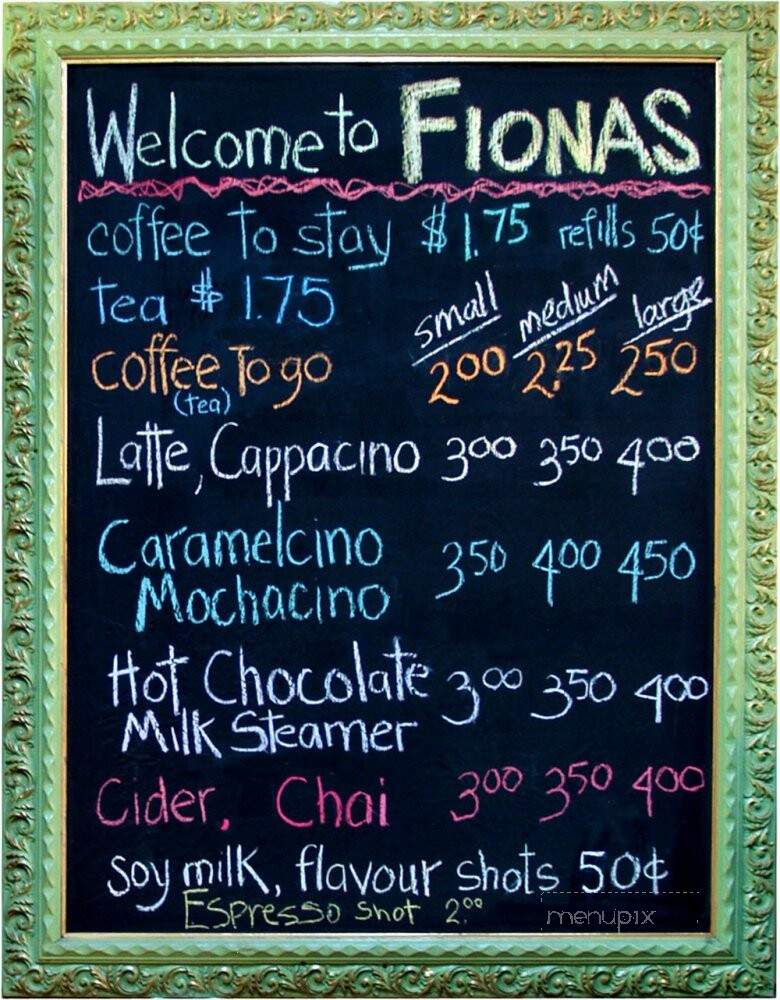 Welcome to FIONAS
coffee to stay $ 1.75 refills 50¢
tea $ 1.75
small medium large
coffee To go 2.00 2.25 2.50
(tea)
Latte, Cappacino 3.00 3.50 4.00
Caramelcino
Mochacino 3.50 4.00 4.50
Hot Chocolate
Milk Steamer 3.00 3.50 4.00
Cider, Chai 3.00 3.50 4.00
soy milk, flavour shots 50¢
Espresso shot 2.00
menupix